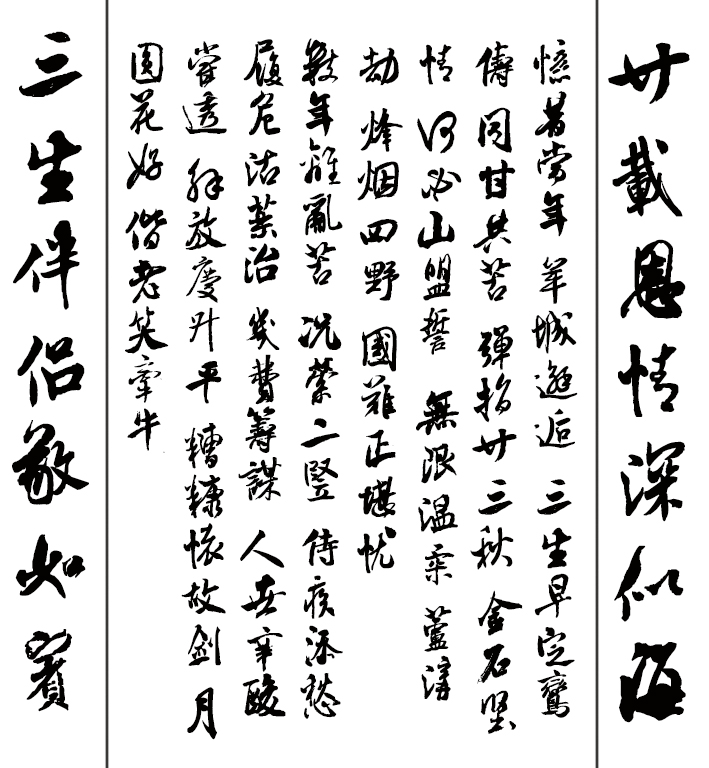 廿載恩情深似海
憶昔當年 羊城邂逅 三生早定鸞
儔 同甘共苦 彈指廿三秋 金石堅
情 何必山盟誓 無限温柔 蘆溝
劫 烽烟四野 國難正堪忧
數年離亂苦 況縈二竪 侍疾添愁
履危沽藥治 幾費籌謀 人世辛酸
嘗透 解放慶升平 糟糠懷故劍 月
圓花好 偕老笑牽牛
三生伴侶敬如賓